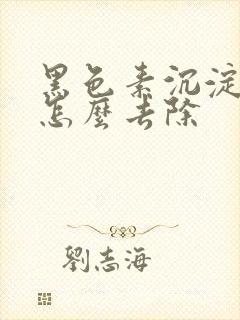 黑色素沉淀
怎麼去除
劉志海